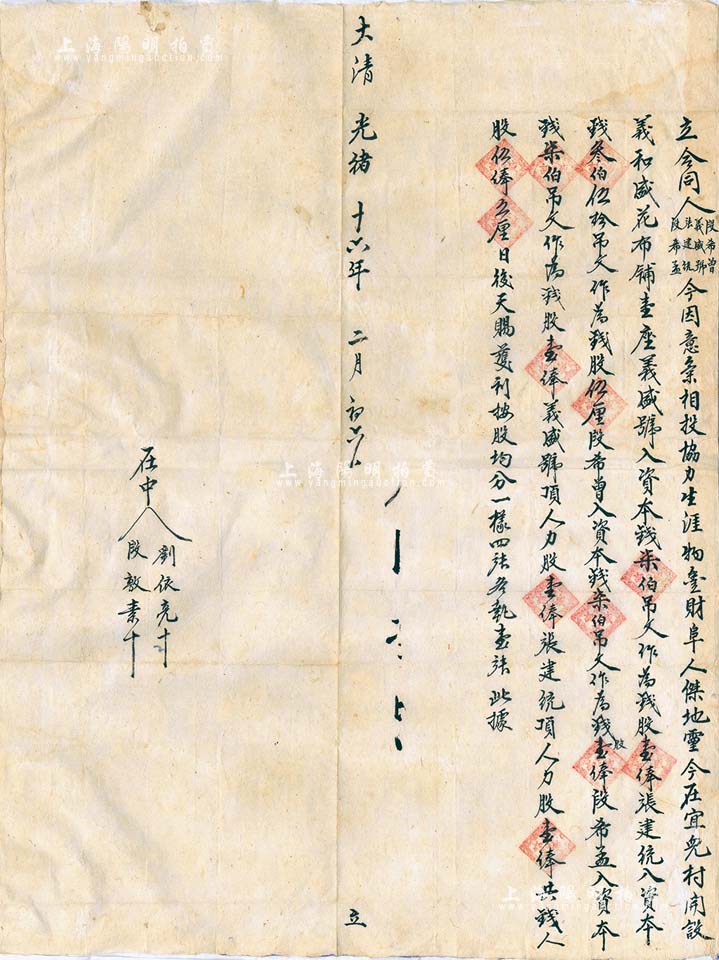 立合同人段希曾義盛號張建統段希孟今因意氣相投協力生涯物豐財阜人傑地靈今在宜兒村開設
義和盛花布铺壹座義盛號入資本錢柒伯吊文作為錢股壹俸張建統入資本
錢叁伯伍拾吊文作為錢股伍厘段希曾入資本錢柒伯吊文作為錢股壹俸段希孟入資本
錢柒伯吊文作為錢股壹俸義盛號頂人力股壹俸張建統頂人力股壹俸共錢人
股伍俸五厘日後天賜獲利按股均分一樣四張各執壹張此據
大清光緒十六年二月初六日
立
在中人
劉依亮十
段敦素十
上海陽明拍賣
www.yangmingauction.com
上海陽明拍賣
www.yangmingauction.com
上海陽明拍賣
www.yangmingauction.com